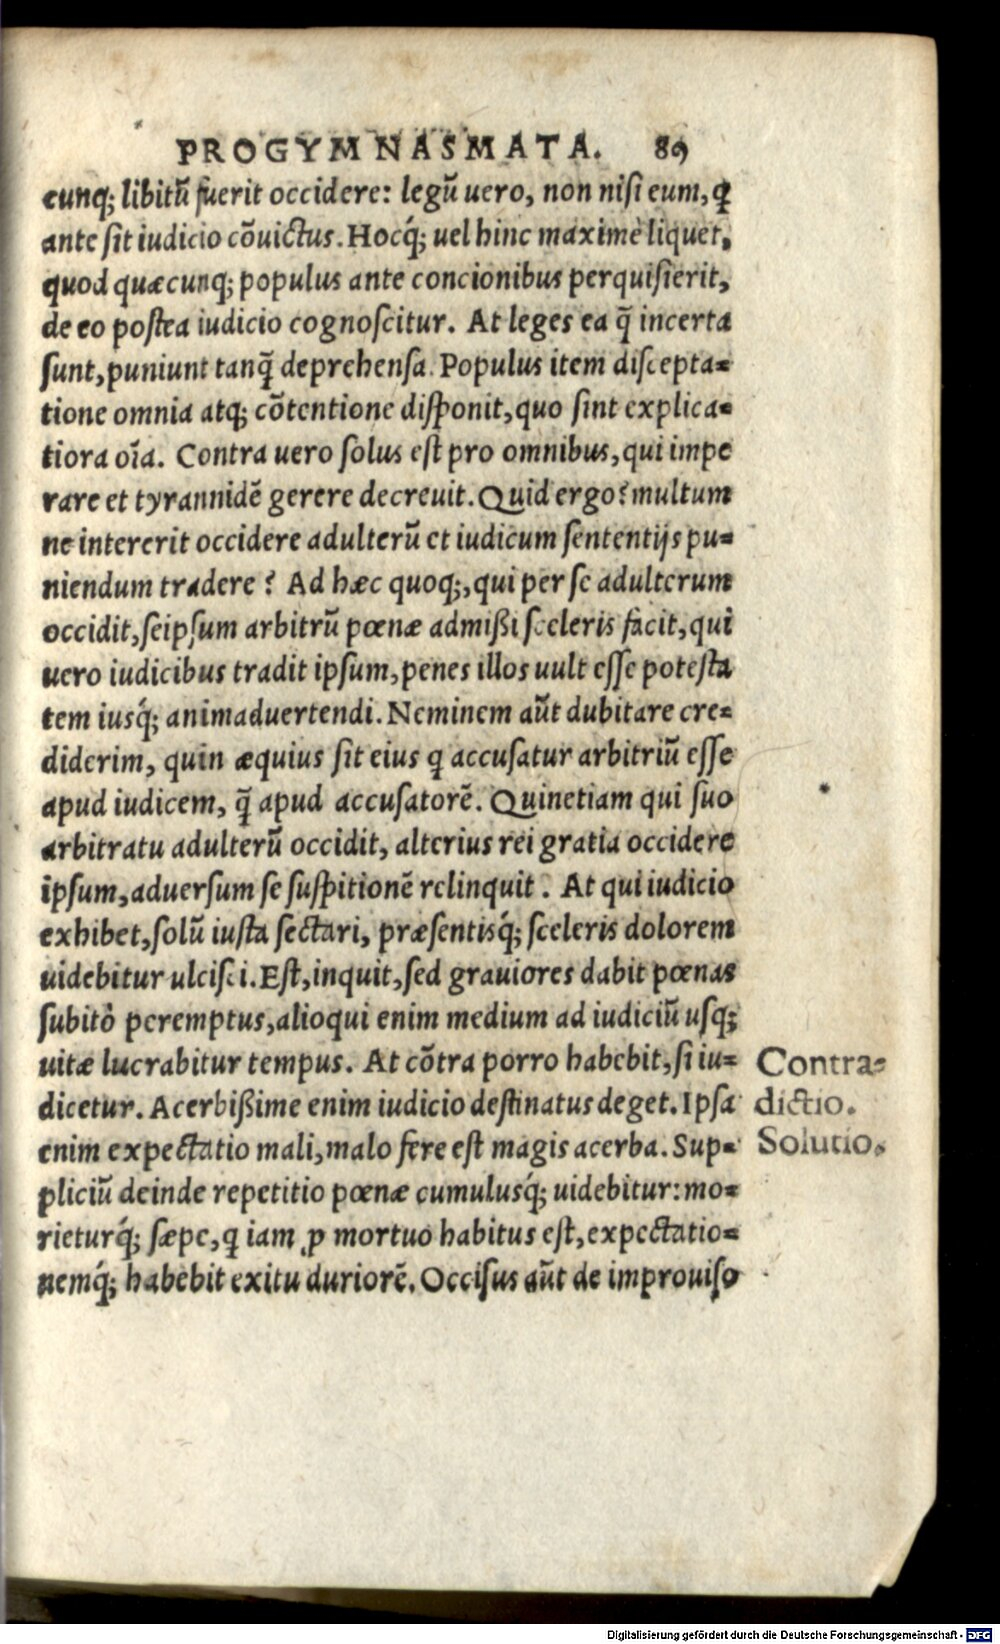 PROGYMNASMATA. 89
cunq; libitũ fuerit occidere: legũ uero, non nisi eum, ꝗ
ante sit iudicio cõuictus. Hocq́; uel hinc maximè liquet,
quod quæcunq; populus ante concionibus perquisierit,
de eo postea iudicio cognoscitur. At leges ea q̃ incerta
sunt, puniunt tanq̃ deprehensa. Populus item discepta-
tione omnia atq; cõtentione disponit, quo sint explica-
tiora oĩa. Contra uero solus est pro omnibus, qui impe
rare et tyrannidẽ gerere decreuit. Quid ergo? multum
ne intererit occidere adulterũ et iudicum sententijs pu-
niendum tradere? Ad hæc quoq;, qui per se adulterum
occidit, seipsum arbitrũ pœnæ admißi sceleris facit, qui
uero iudicibus tradit ipsum, penes illos uult esse potesta
tem iusq́; animaduertendi. Neminem aũt dubitare cre-
diderim, quin æquius sit eius ꝗ accusatur arbitriũ esse
apud iudicem, q̃ apud accusatorẽ. Quinetiam qui suo
arbitratu adulterũ occidit, alterius rei gratia occidere
ipsum, aduersum se suspitionẽ relinquit. At qui iudicio
exhibet, solũ iusta sectari, præsentisq́; sceleris dolorem
uidebitur ulcisci. Est, inquit, sed grauiores dabit pœnas
subitò peremptus, alioqui enim medium ad iudiciũ usq;
uitæ lucrabitur tempus. At cõtra porro habebit, si iu-
dicetur. Acerbißime enim iudicio destinatus deget. Ipsa
enim expectatio mali, malo fere est magis acerba. Sup-
pliciũ deinde repetitio pœnæ cumulusq́; uidebitur: mo-
rieturq́; sæpe, ꝗ iam ꝓ mortuo habitus est, expectatio-
nemq́; habebit exitu duriorẽ. Occisus aũt de improuiso
Contra-
dictio.
Solutio.
Digitalisierung gefördert durch die Deutsche Forschungsgemeinschaft - DFG